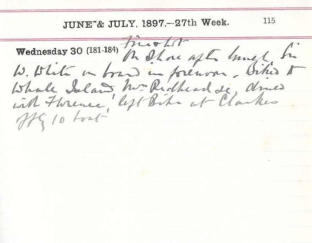 JUNE & JULY, 1897.—27th Week. 115
Wednesday 30 (181-184) Fine & hot
On shore after lunch Sir
W. White on board in forenoon. Biked to
Whale Island, Mrs Redhead &c, dined
with Florence, left Bike at Clarkes
10 boat